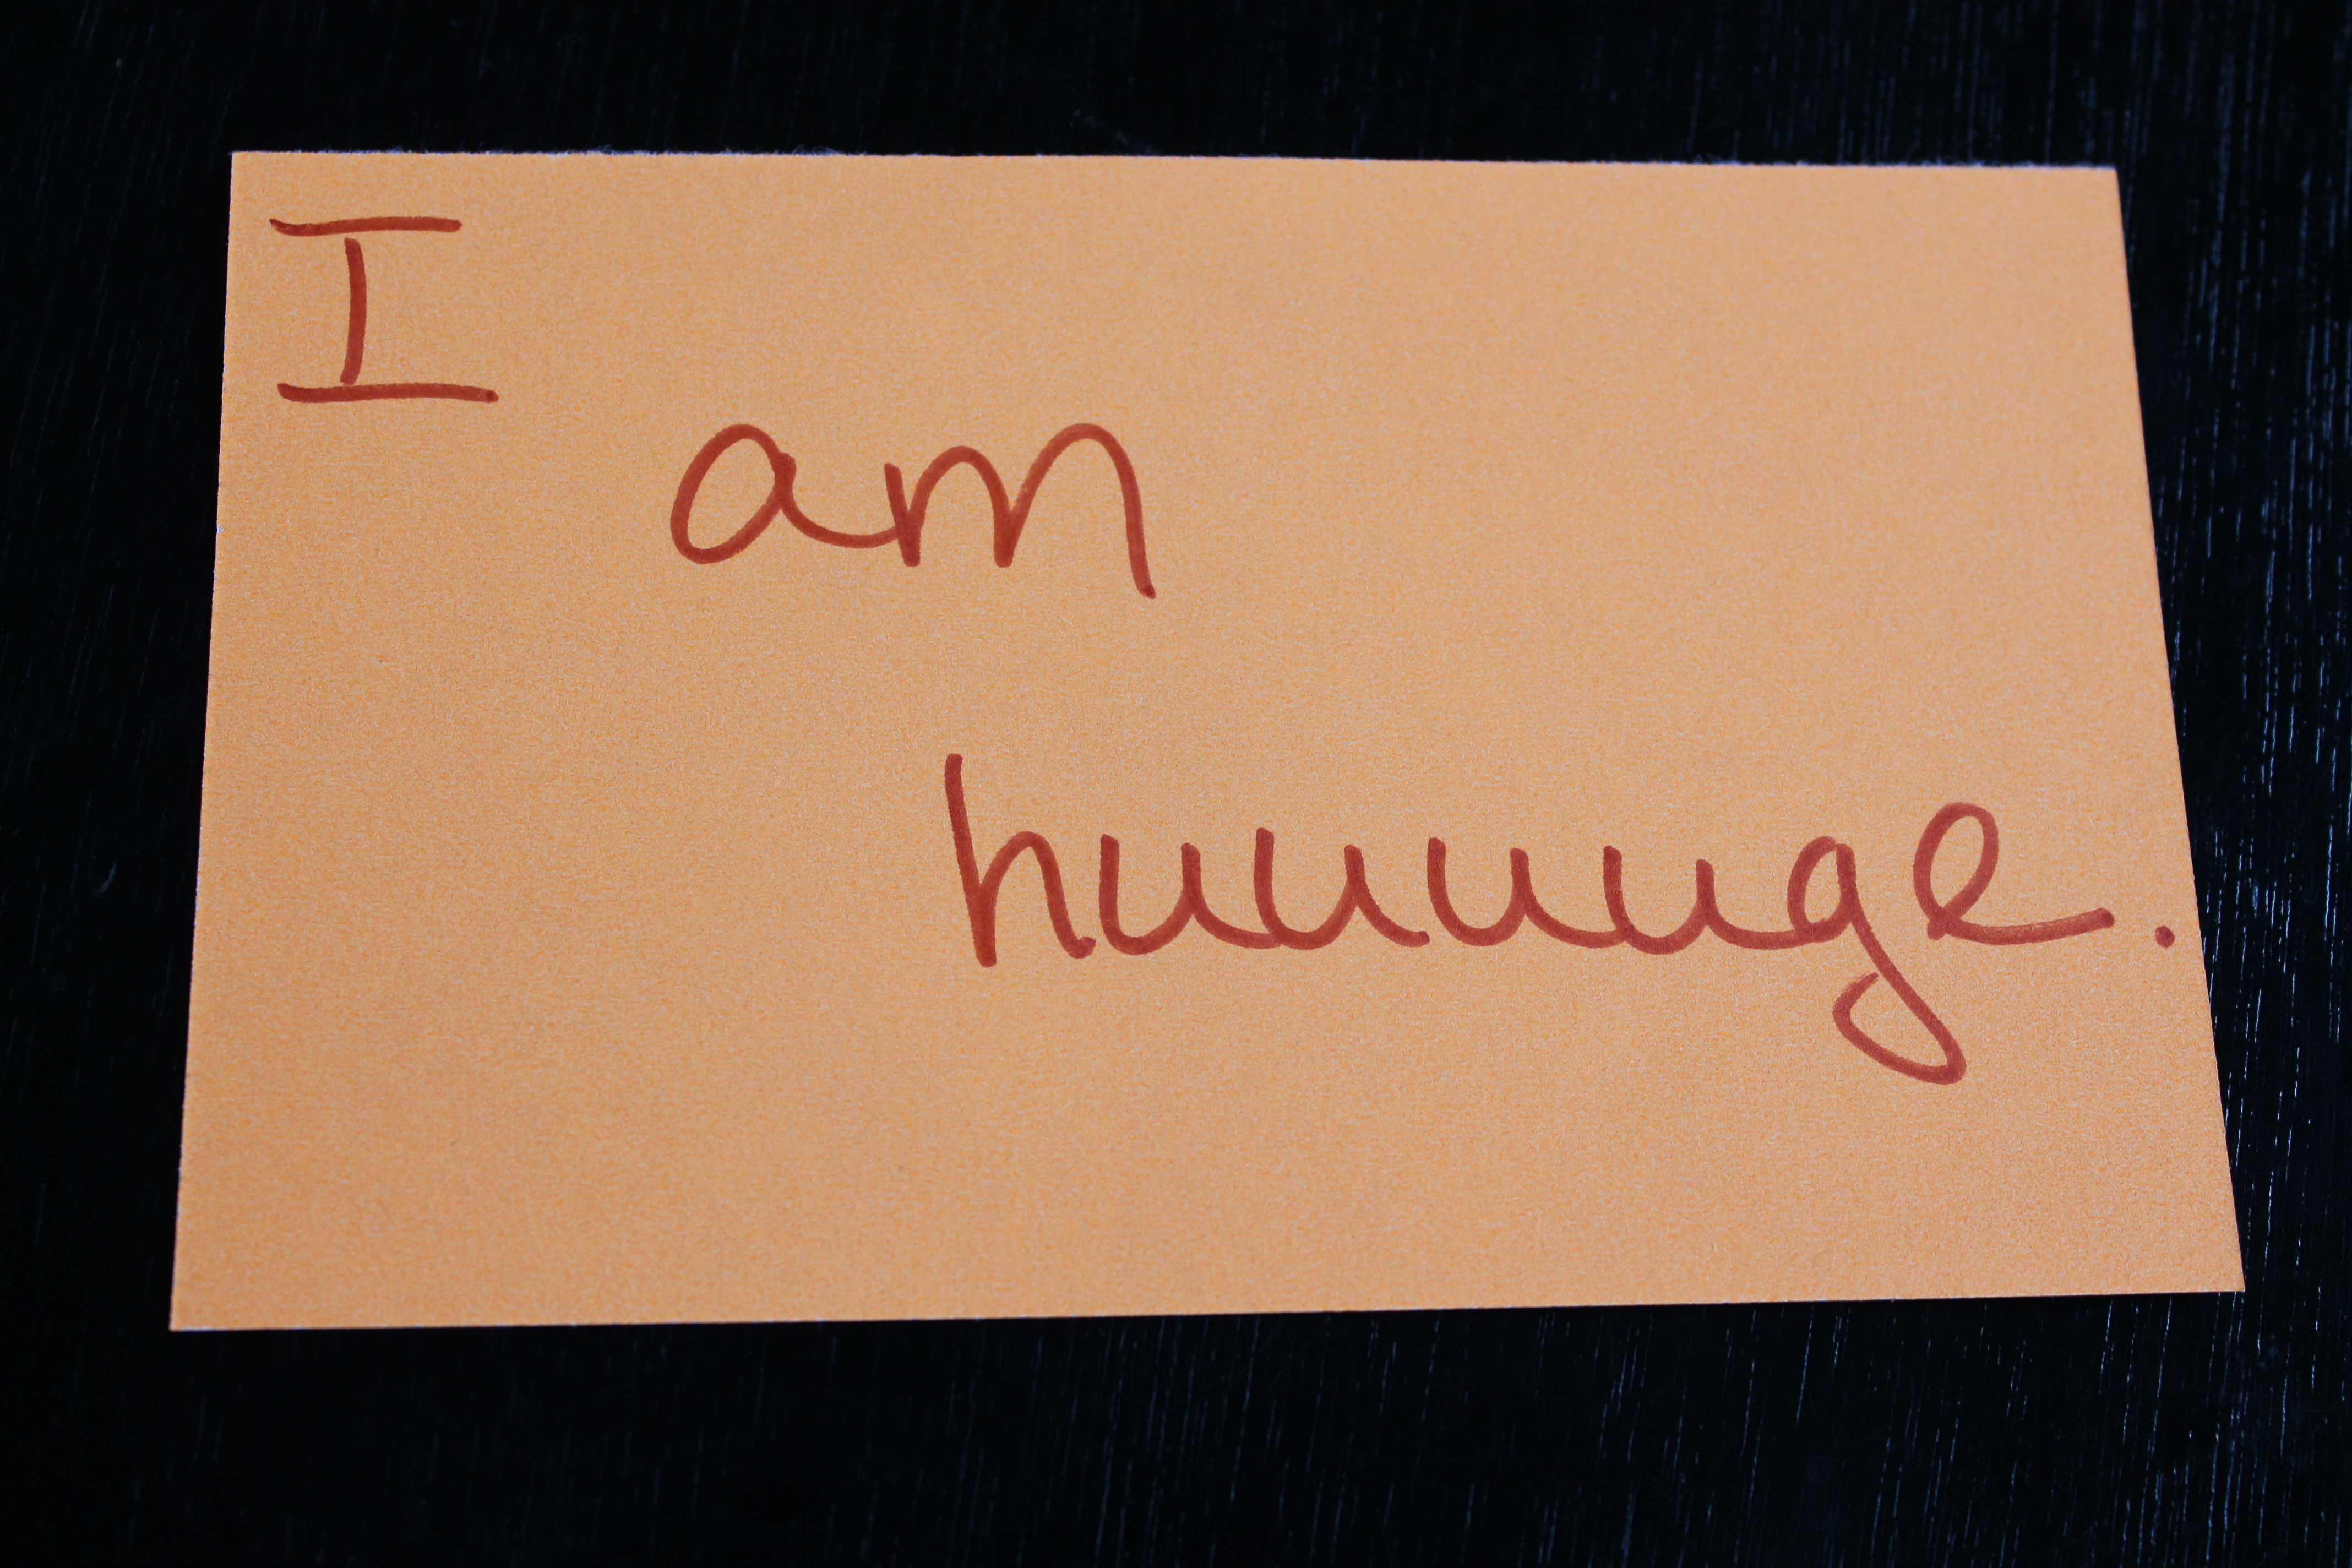 I
am
huuuuge.